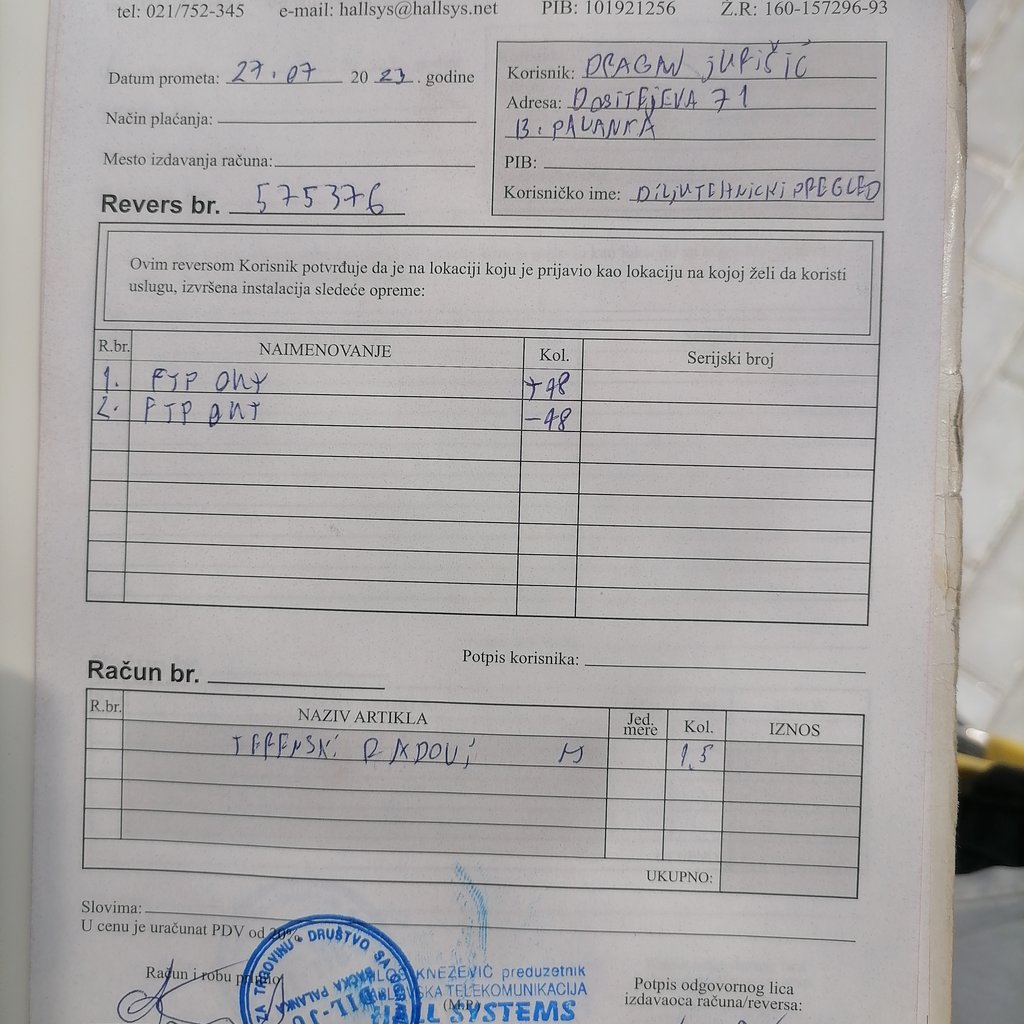 tel: 021/752-345 e-mail: hallsys@hallsys.net PIB: 101921256 Ž.R: 160-157296-93
Datum prometa: 27.07 20 23. godine
Način plaćanja:
Mesto izdavanja računa:
Revers br. 575376
Korisnik: DRAGAN JURIŠIĆ
Adresa: DOSITEJEVA 71
B. PALANKA
PIB:
Korisničko ime: DILJUTEHNICKI PREGLED
Ovim reversom Korisnik potvrđuje da je na lokaciji koju je prijavio kao lokaciju na kojoj želi da koristi
uslugu, izvršena instalacija sledeće opreme:
R.br. NAIMENOVANJE Kol. Serijski broj
1. FTP ONT +48
2. FTP ONT -48
Potpis korisnika:
Račun br.
R.br. NAZIV ARTIKLA Jed. mere Kol. IZNOS
TERENSKI RADOVI H 1,5
UKUPNO:
Slovima:
U cenu je uračunat PDV od 20%
Račun i robu primio
ZA TRGOVINU - DRUŠTVO SA
BAČKA PALANKA
KNEZEVIĆ preduzetnik
TELEKOMUNIKACIJA
(M.P.)
HALL SYSTEMS
Potpis odgovornog lica
izdavaoca računa/reversa: